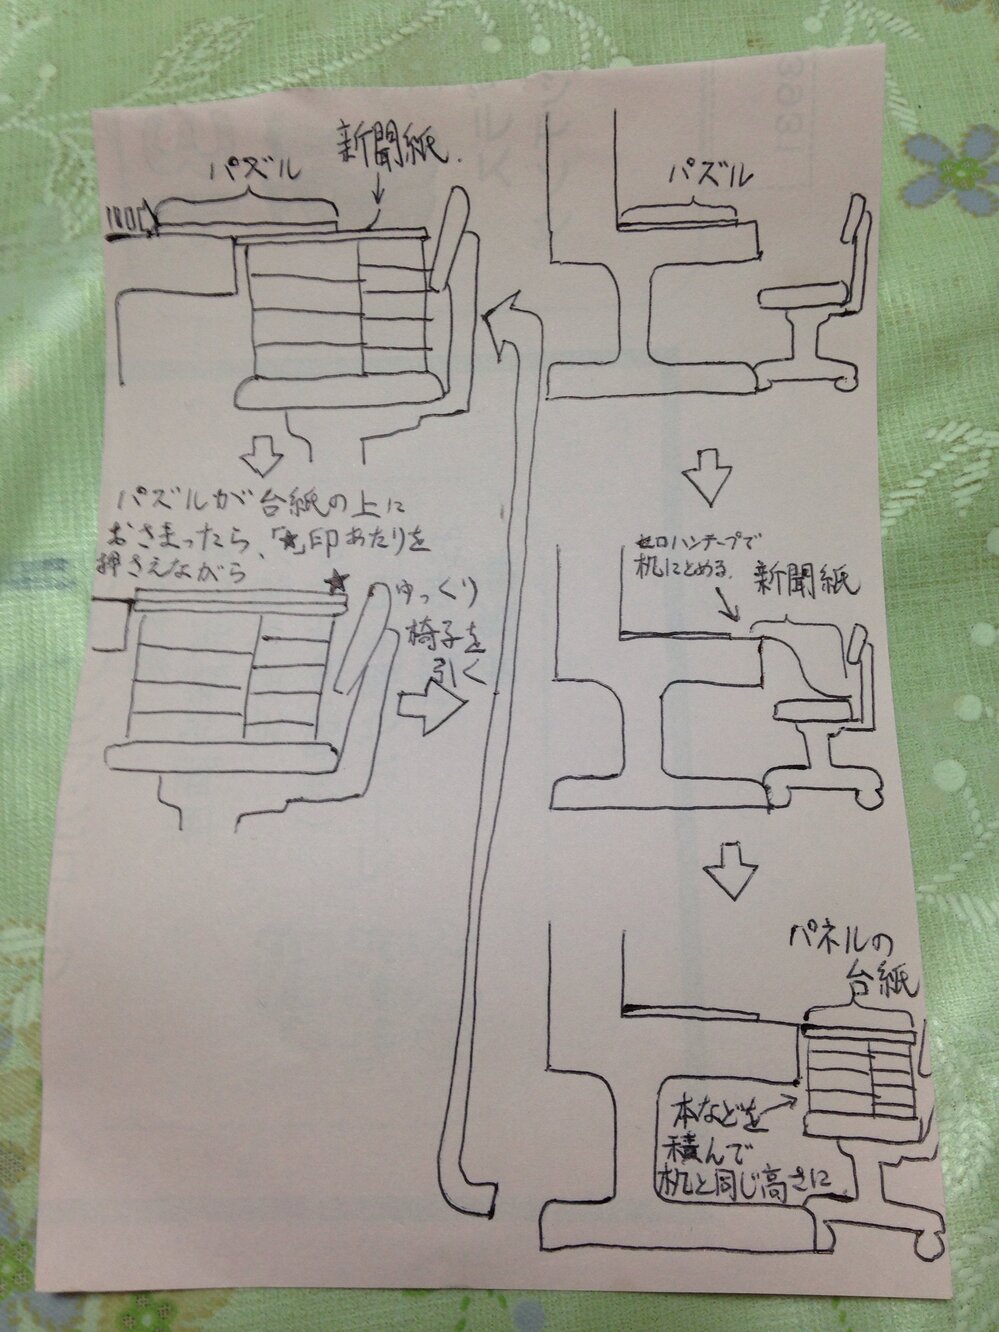 パズル
セロハンテープで
机にとめる.
新聞紙
パネルの
台紙
本などを
積んで
机と同じ高さに.
新聞紙.
パズル
パズルが台紙の上に
おさまったら、「★」印あたりを
押さえながら
★
ゆっくり
椅子を
引く